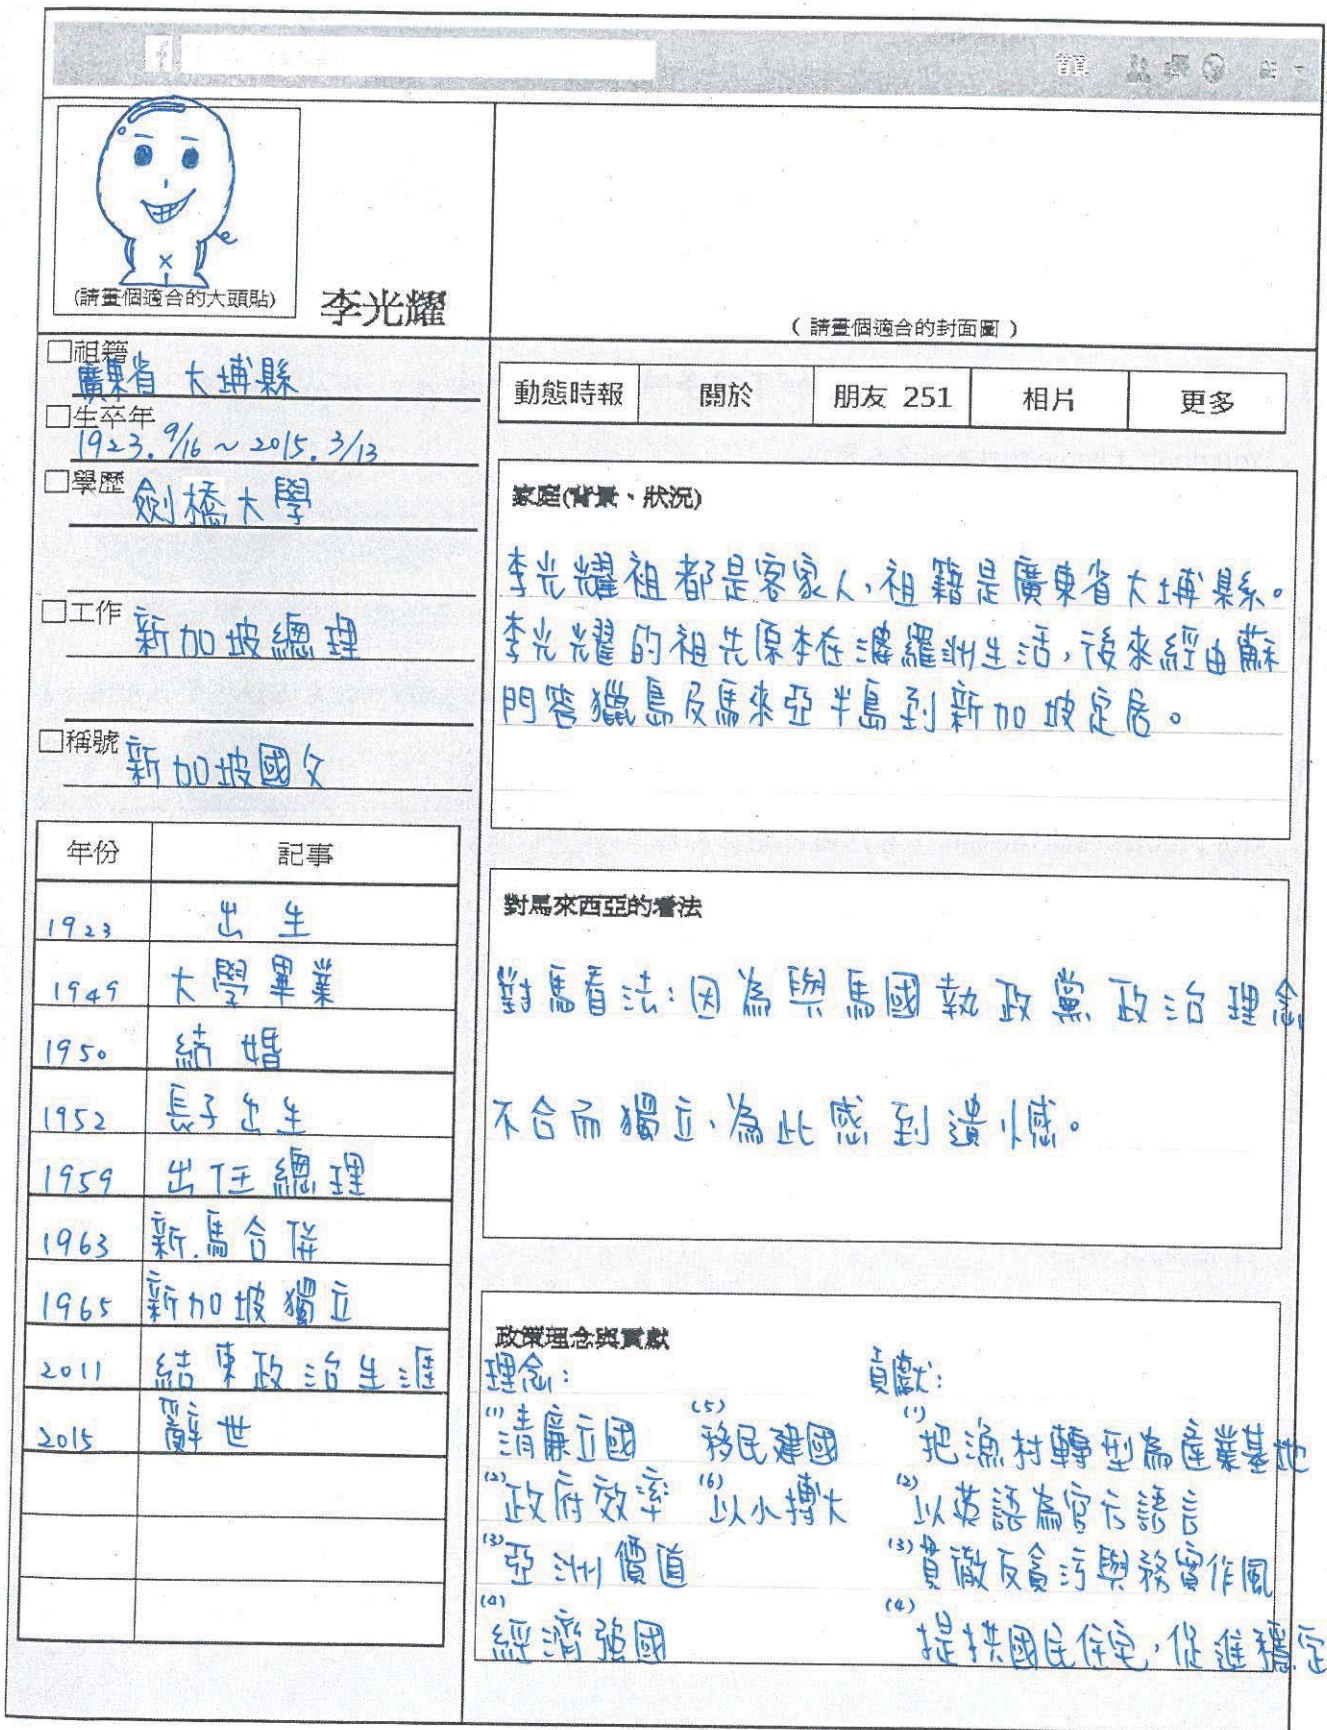 首頁
(請畫個適合的大頭貼)
李光耀
( 請畫個適合的封面圖 )
□祖籍
廣東省 大埔縣
□生卒年
1923. 9/16 ~ 2015. 3/13
□學歷
劍橋大學
□工作
新加坡總理
□稱號
新加坡國父
年份 記事
1923 出生
1949 大學畢業
1950 結婚
1952 長子出生
1959 出任總理
1963 新.馬合併
1965 新加坡獨立
2011 結束政治生涯
2015 辭世
動態時報 關於 朋友 251 相片 更多
家庭(背景、狀況)
李光耀祖都是客家人,祖籍是廣東省大埔縣。
李光耀的祖先原本在婆羅洲生活,後來經由蘇
門答獵島及馬來亞半島到新加坡定居。
對馬來西亞的看法
對馬看法:因為與馬國執政黨政治理念
不合而獨立,為此感到遺憾。
政策理念與貢獻
理念:
(1)清廉立國
(2)政府效率
(3)亞洲價值
(4)經濟強國
(5)移民建國
(6)以小搏大
貢獻:
(1)把漁村轉型為產業基地
(2)以英語為官方語言
(3)貫徹反貪污與務實作風
(4)提供國民住宅,促進穩定